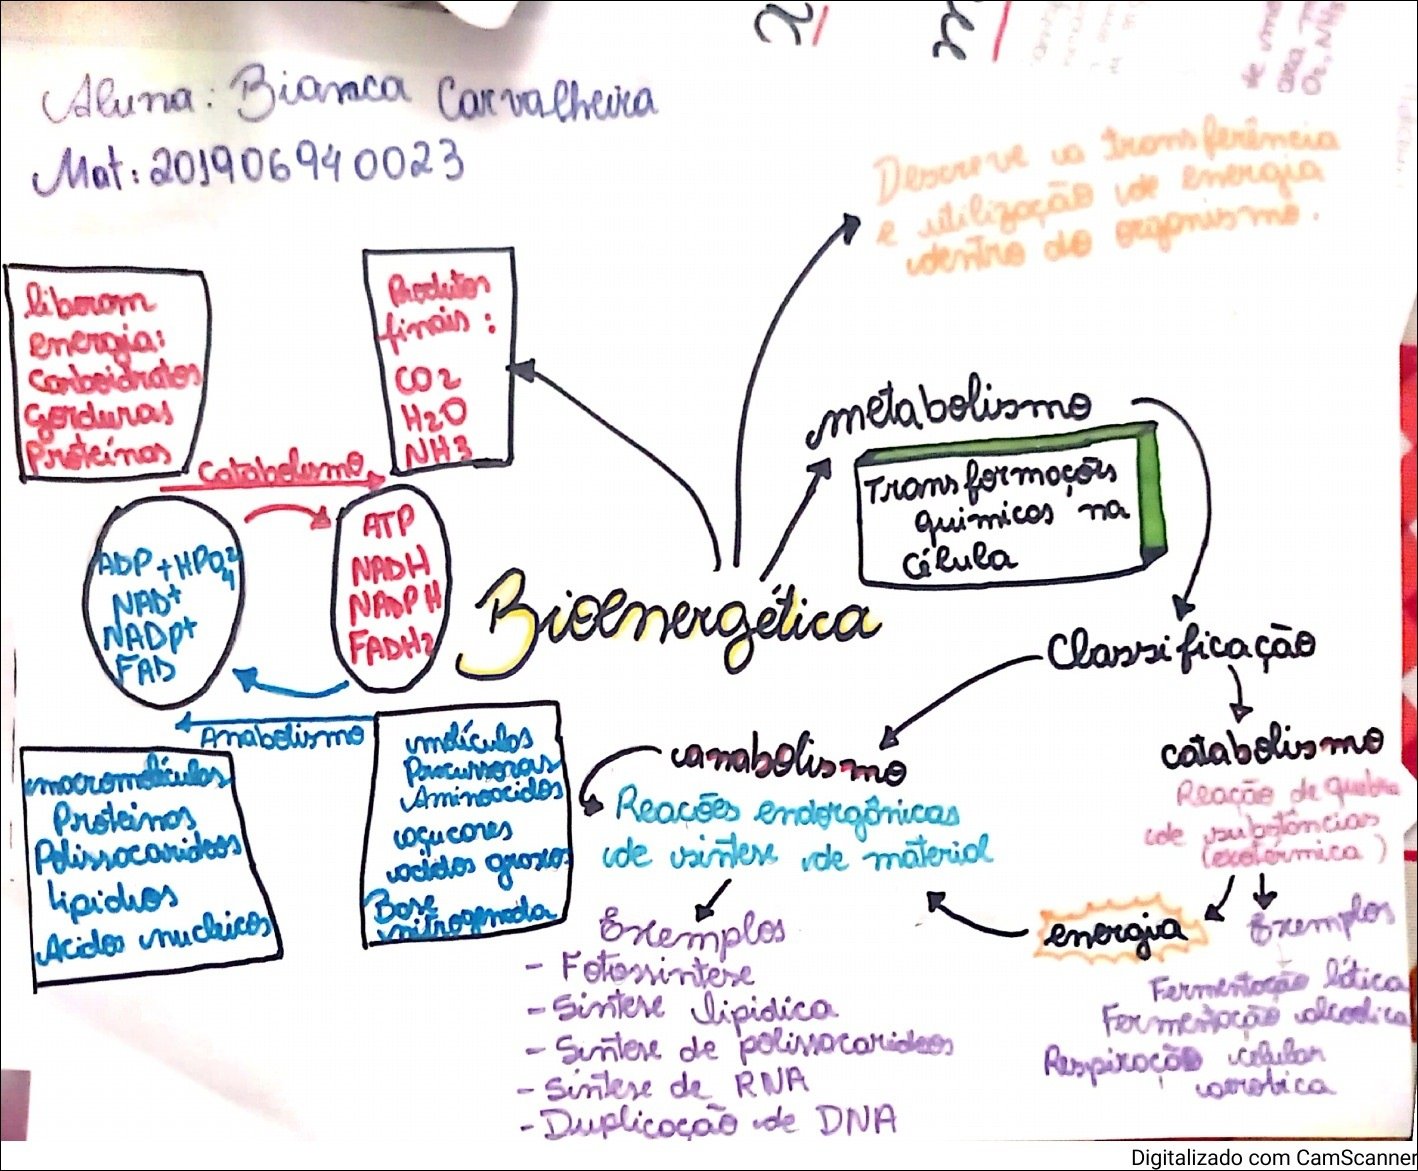 Aluna: Bianca Carvalheira
Mat: 201906940023
Descreve a transferência
e utilização de energia
dentro do organismo.
liberam
energia:
Carboidratos
Gorduras
Proteínas
Produtos
finais:
CO2
H2O
NH3
Catabolismo
ADP + HPO4 2-
NAD+
NADP+
FAD
ATP
NADH
NADPH
FADH2
Anabolismo
macromoléculas
Proteínas
Polissacarideos
Lipidios
Acidos nucleicos
moléculas
Precursoras
Aminoacidos
açucares
acidos graxos
Base
nitrogenada
Bioenergética
metabolismo
Transformações
quimicas na
Célula
Classificação
anabolismo
Reações endergônicas
de sintese de material
Exemplos
- Fotossintese
- Sintese lipidica
- Sintese de polissacarideos
- Sintese de RNA
- Duplicação de DNA
catabolismo
Reação de quebra
de substâncias
(exotérmica)
energia
Exemplos
Fermentação lática
Fermentação alcoolica
Respiração celular
aerobica
Digitalizado com CamScanner